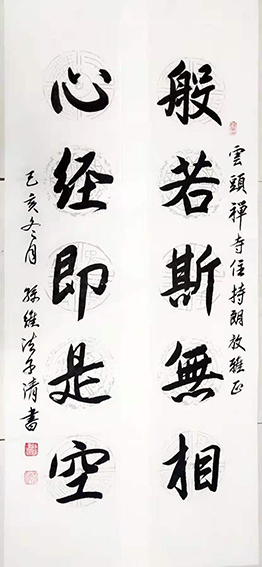 雲頭禪寺住持朗放雅正
般若斯無相
心经即是空
己亥冬月 孫維法子清書